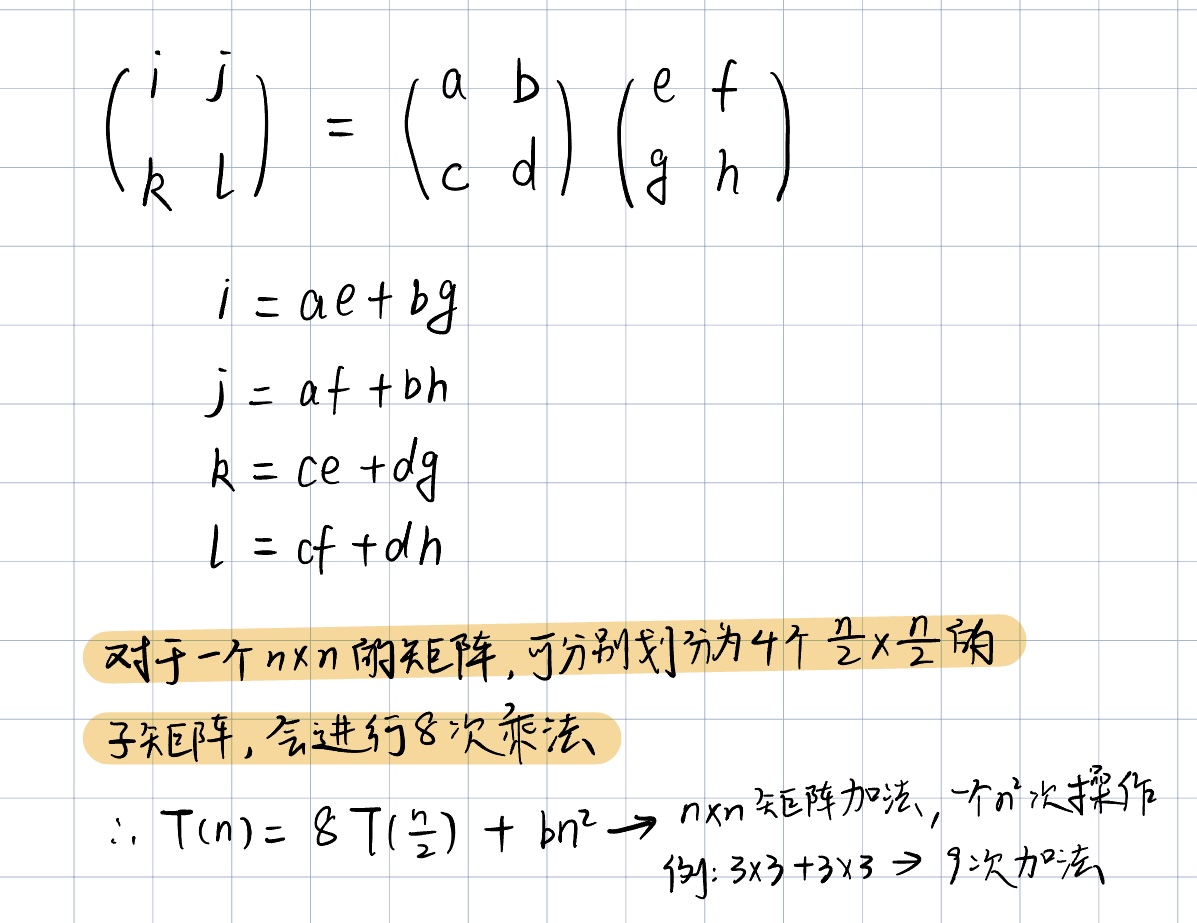 ( i j ) = ( a b ) ( e f )
( k l ) ( c d ) ( g h )
i = ae + bg
j = af + bh
k = ce + dg
l = cf + dh
对于一个 n×n 的矩阵, 可分别划分为 4 个 n/2 × n/2 的
子矩阵, 会进行 8 次乘法
∴ T(n) = 8 T(n/2) + bn² → n×n 矩阵加法, 一个 n² 次操作
例: 3×3 + 3×3 → 9次加法